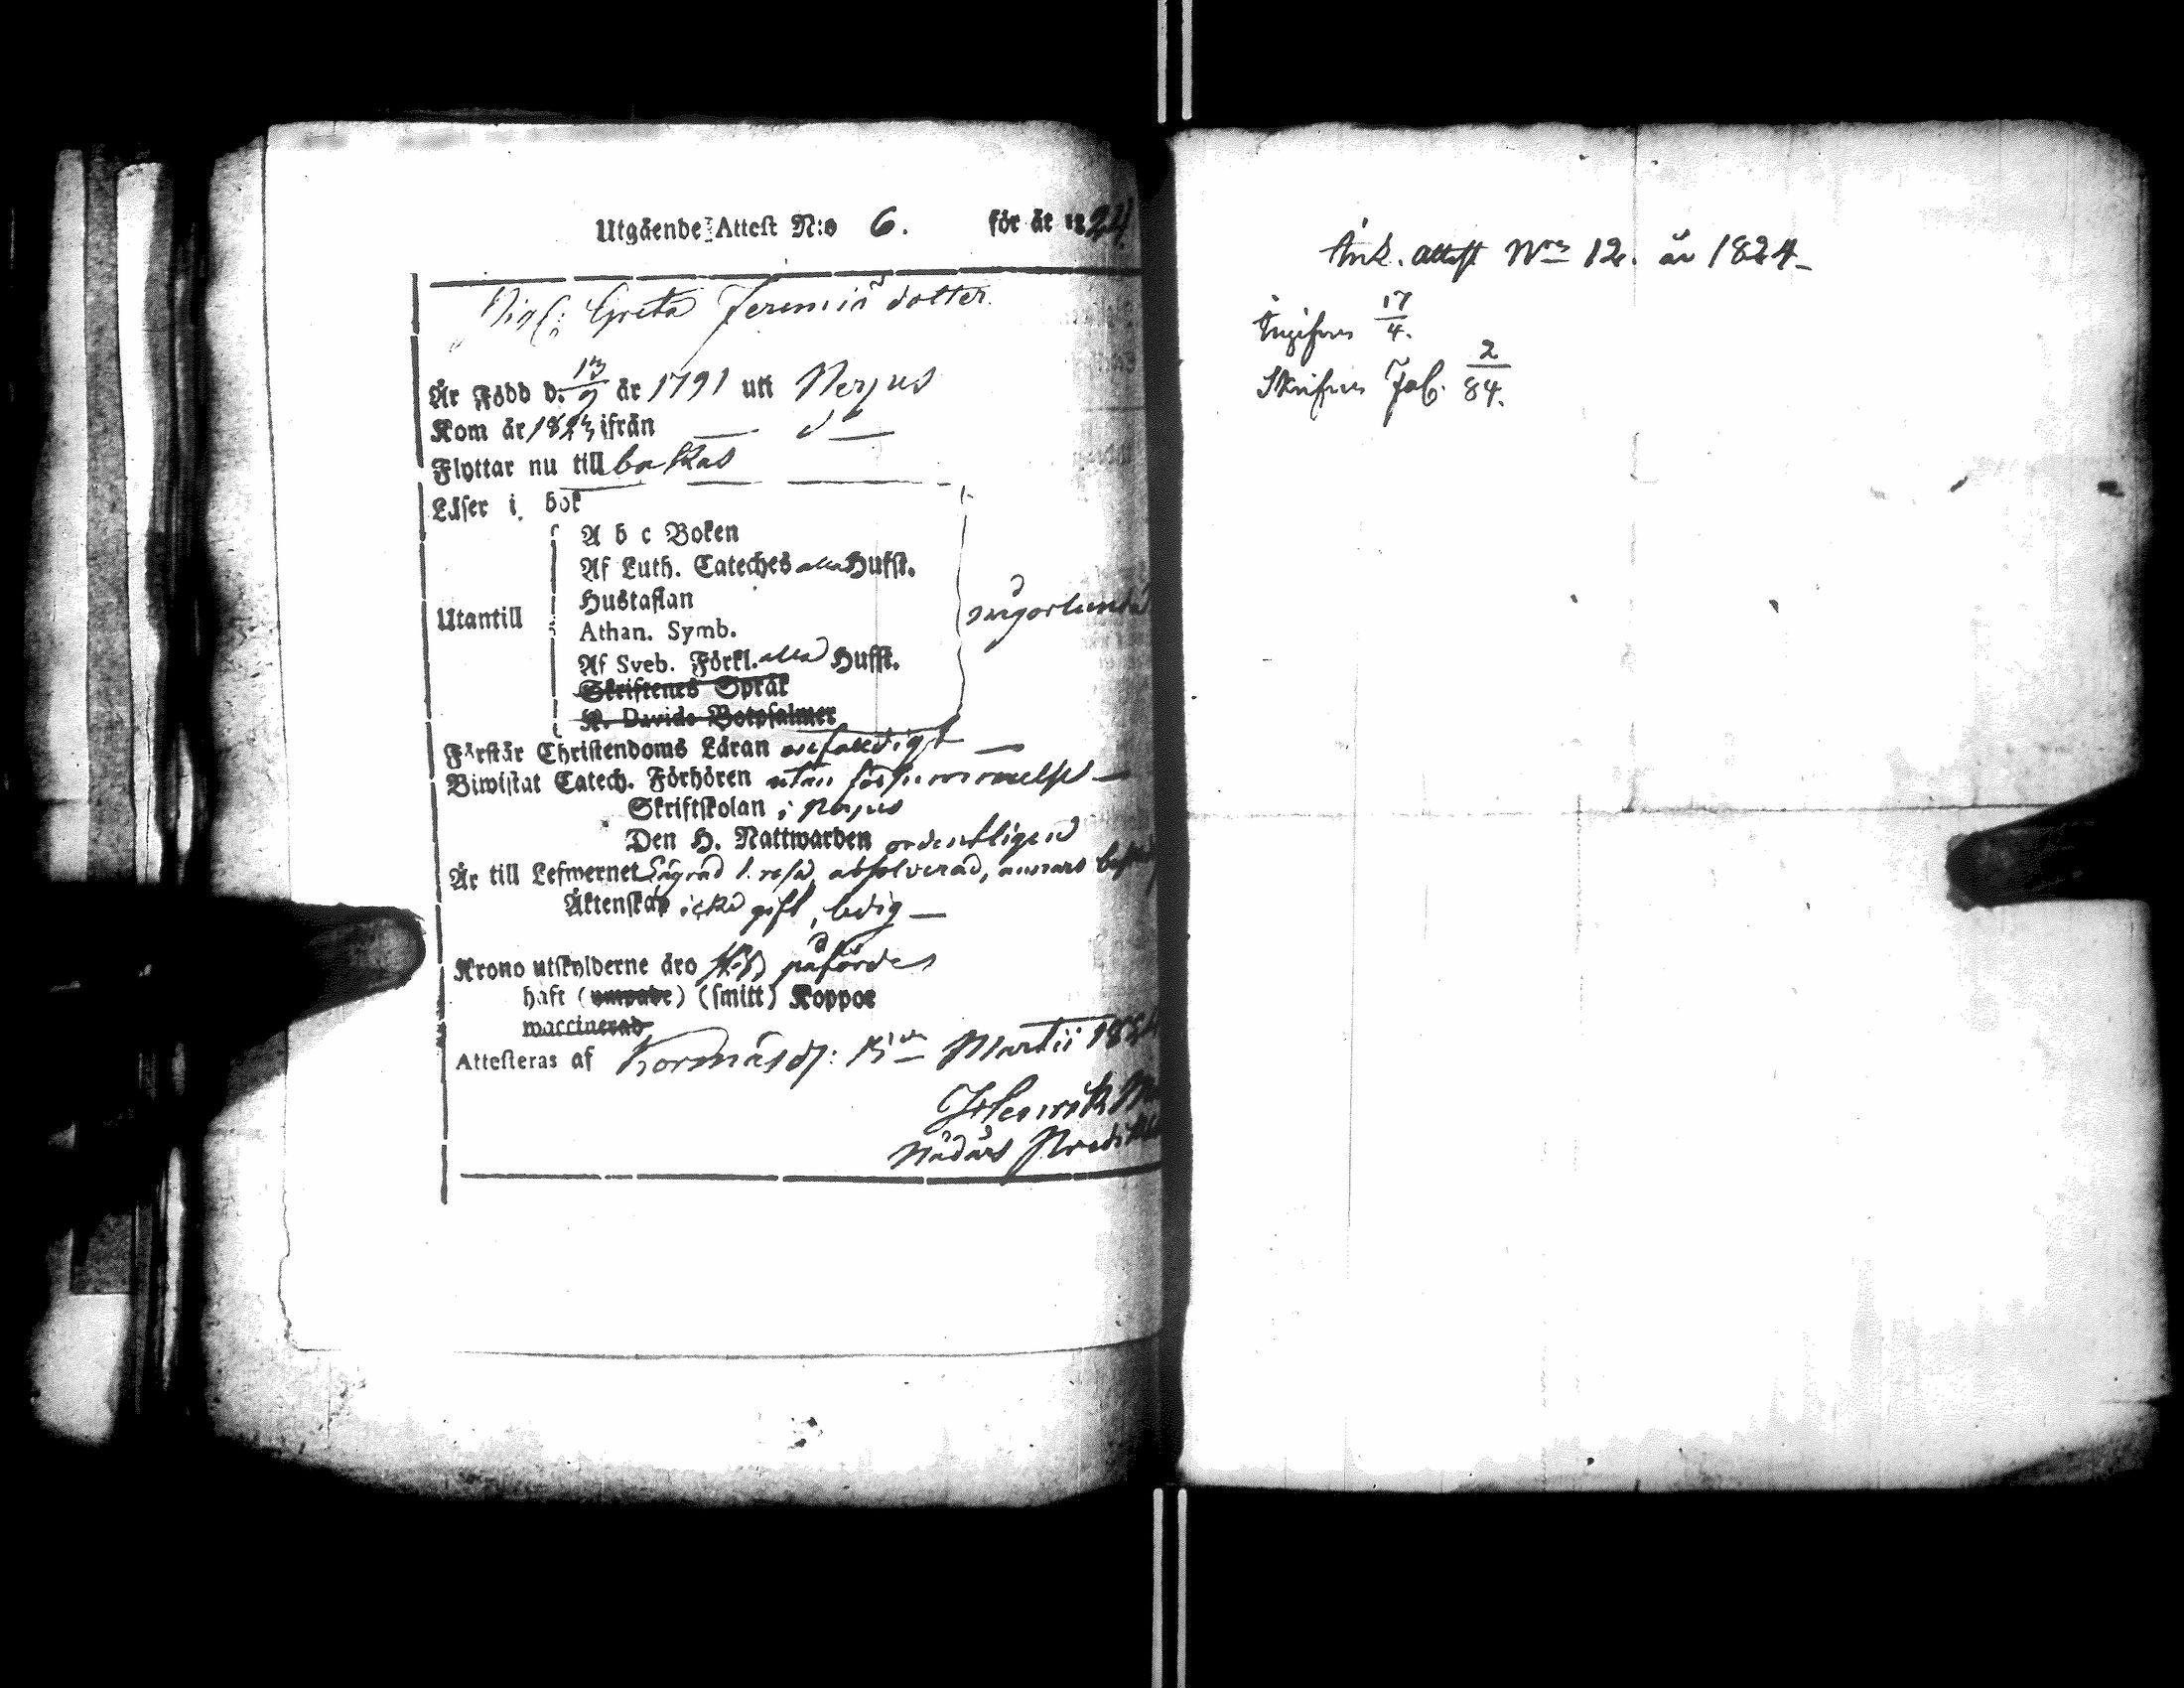 Utgående Attest N:o 6. för år 1824
Pig: Greta Jeremiæ dotter.
Är Född d. 13/9 år 1791 uti Nerpes
Kom år 1823 ifrån — do —
Flyttar nu till bakas
Läser i bok
A b c Boken
Af Luth. Cateches alla Hufst.
Hustaflan
Utantill
Athan. Symb.
någorlunda
Af Sveb. Förkl. alla Hufst.
Skriftenes Språk
K. Davids Botpsalmer
Förstår Christendoms Läran enfaldigt —
Biwistat Catech. Förhören utan försummelse —
Skriftskolan i Nerpes
Den H. Nattwarden ordentligen
Är till Lefwernet Lägrad 1. resa, absolverad, annars
Äktenskap icke gift, ledig —
Krono utskylderne äro påförde
haft (ympade) (smitt) Koppor
waccinerad
Attesteras af Martii 1824
Nådårs
Ank. attest Nro 12. år 1824-
Ingifven 17/4.
Skrifven Fol. 2/84.